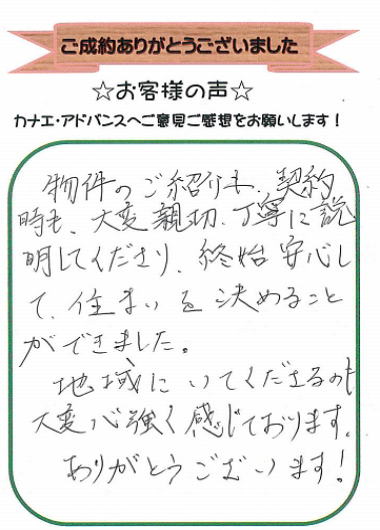 ご成約ありがとうございました
☆お客様の声☆
カナエ・アドバンスへご意見ご感想をお願いします！
物件のご紹介も、契約
時も、大変親切、丁寧に説
明してくださり、終始安心し
て、住まいを決めること
ができました。
地域にいてくださるのも
大変心強く感じております。
ありがとうございます！